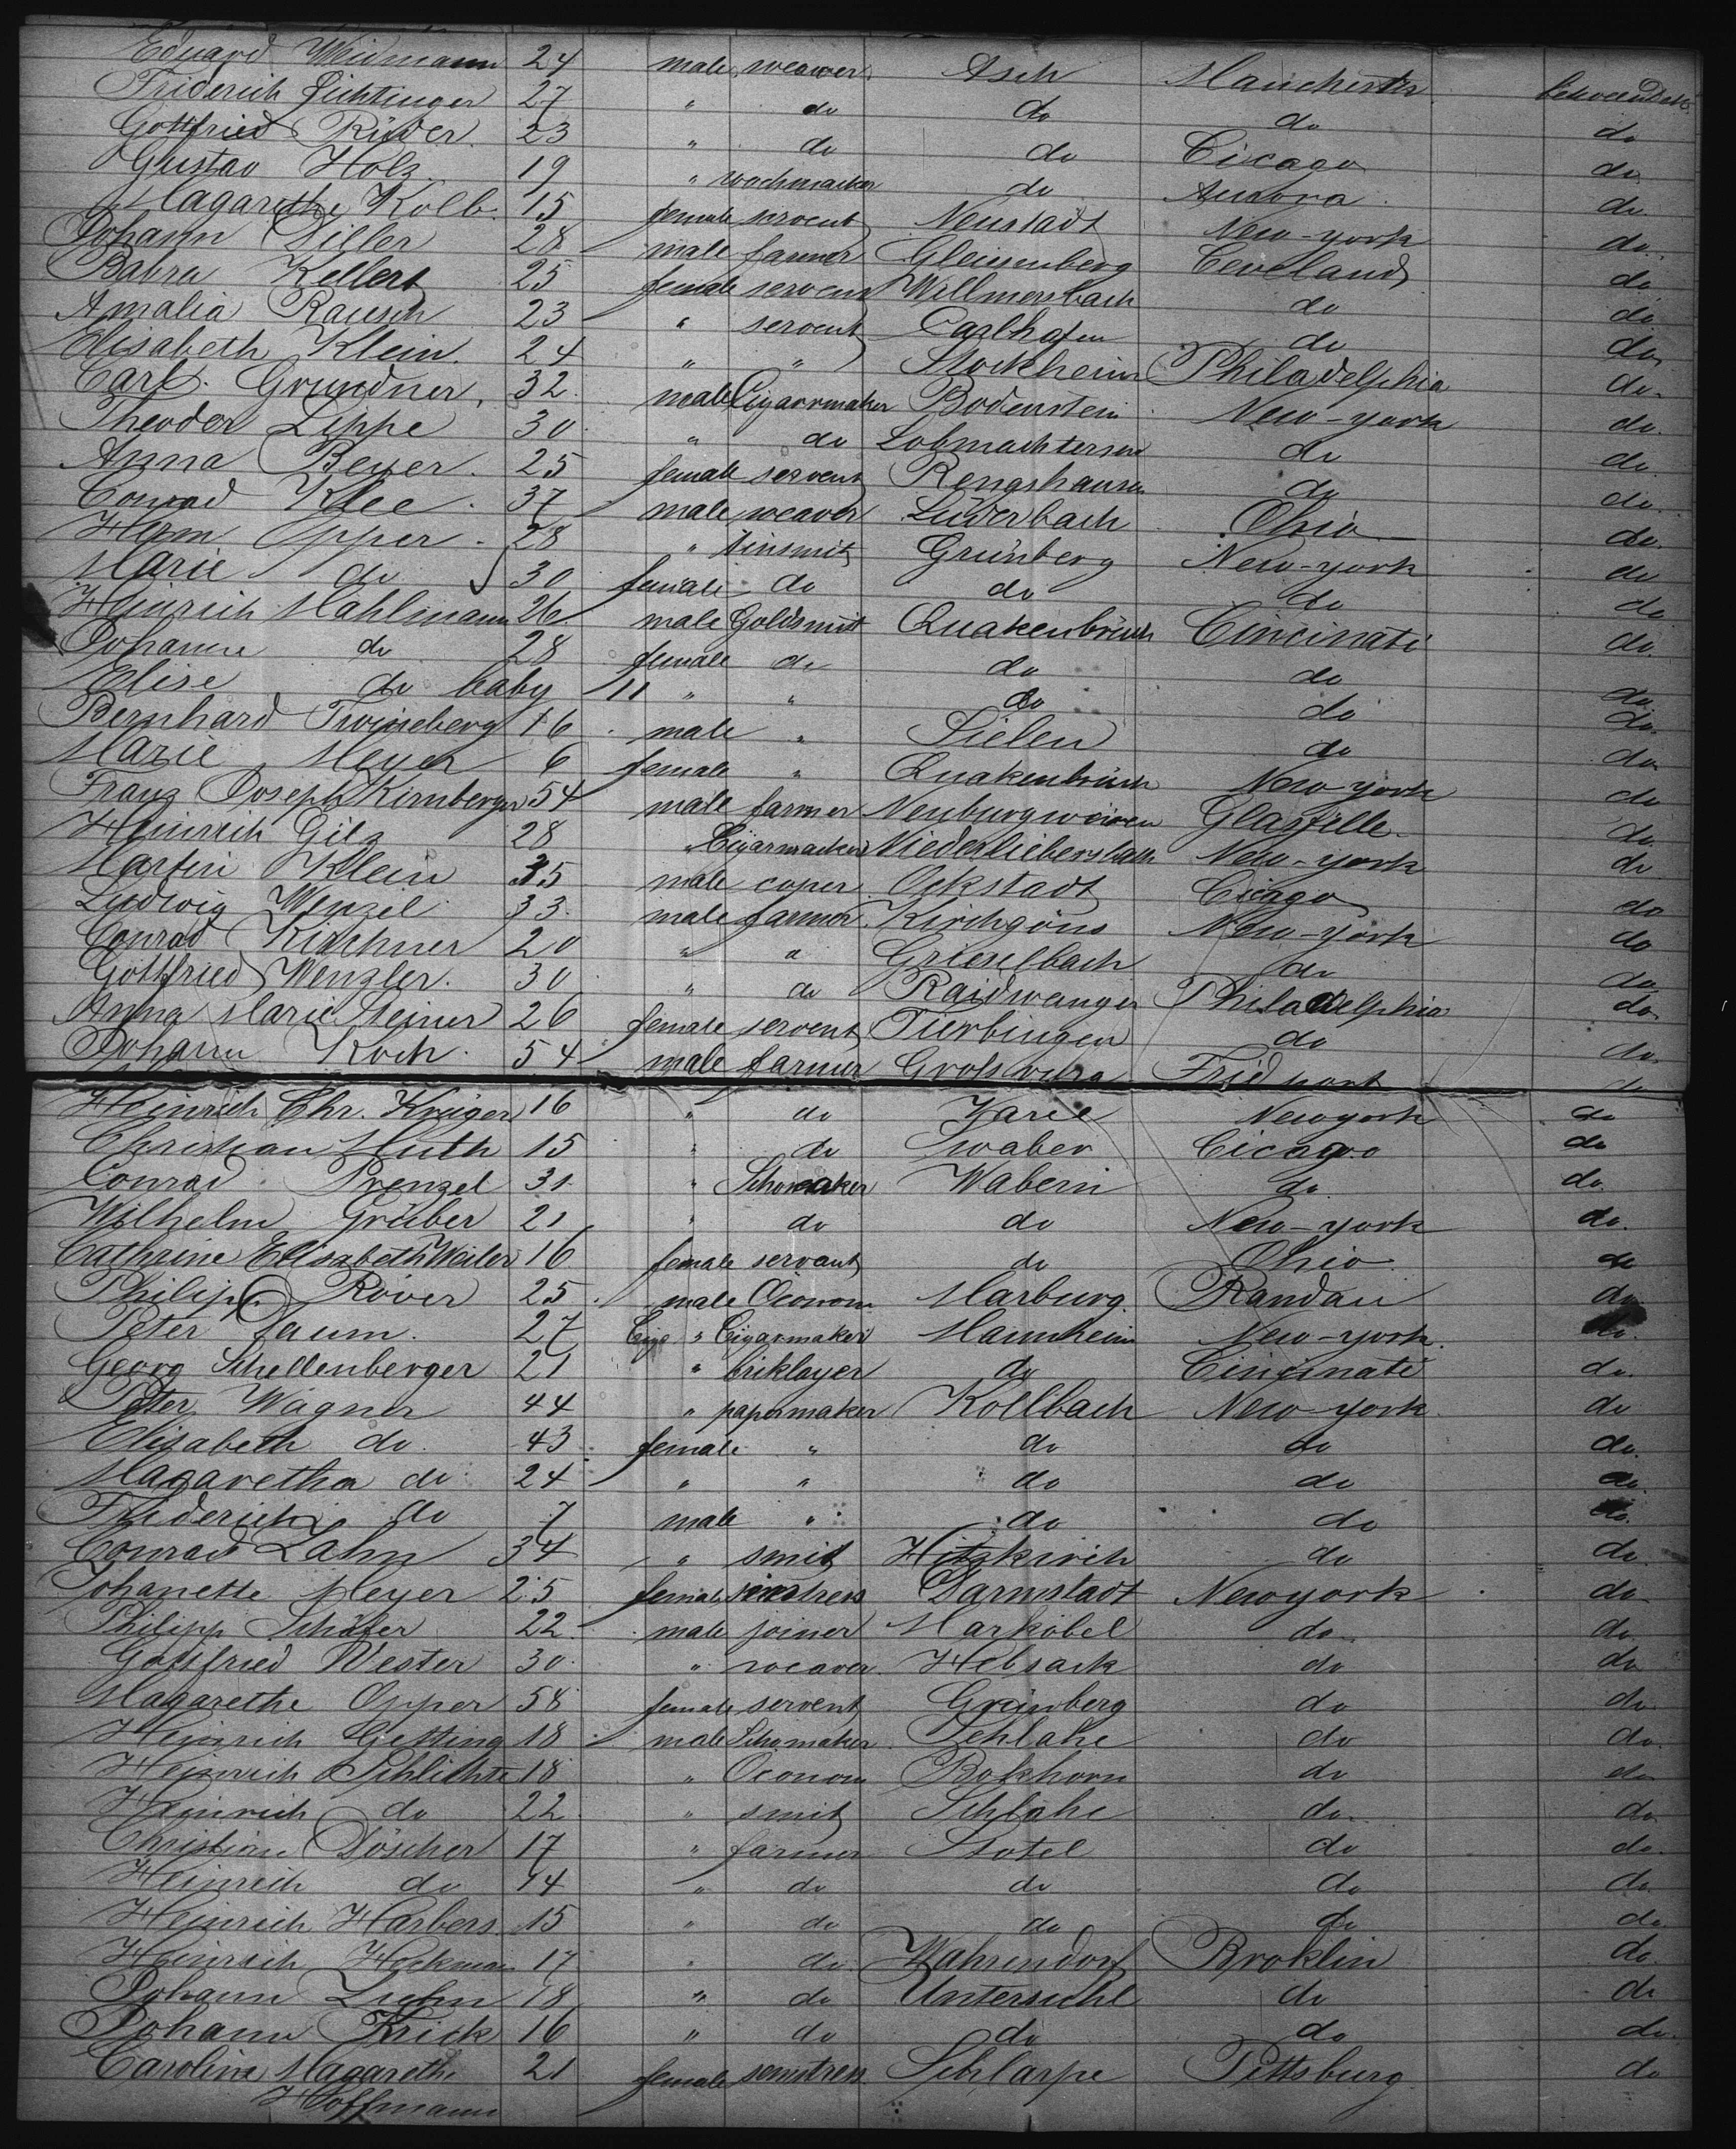 Eduard Weidmann 24 male weawer Asch Manchester betweendeck
Friderich Fichtinger 27 " do do do do
Gottfried Rüder 23 " do do Cicago do
Gustav Holz 19 " wochmacker do Aurora do
Magarethe Kolb 15 female servent Neustadt New-york do
Johann Diller 28 male farmer Gleisenberg Ceveland do
Babra Kellert 25 female servent Willmersbach do do
Amalia Rausch 23 " servent Carlhafen do do
Elisabeth Klein 24 " " Stockheim Philadelphia do
Carl Grundner 32 male Cigarrmaker Bodenstein New-york do
Theodor Lippe 30 " do Lobmachtersen do do
Anna Beyer 25 female servent Rengshausen do do
Conrad Klee 37 male weaver Lüderbach Ohio do
Herm Opper 28 " tinsmit Grünberg New-york do
Marie do 30 female do do do do
Heinrich Mahlmann 26 male Goldsmit Quakenbrück Cincinati do
Johanne do 28 female do do do do
Elise do baby 11 " " do do do
Bernhard Twineberg 16 male " Sielen do do
Marie Meyer 6 female " Quakenbrück New-york do
Franz Joseph Kirnberger 54 male farmer Neuburgweiren Glasfille do
Heinrich Gilz 28 " Cigarmacker Niederliebersbach New-york do
Martin Klein 35 male cuper Ockstadt Cicago do
Ludwig Wenzel 33 male farmer Kirchgöns New-york do
Conrad Kirchner 20 " " Grieselbach do do
Gottfried Wenzler 30 " do Raidwangen Philadelphia do
Anna Marie Steiner 26 female servent Tierbingen do do
Johann Koch 54 male farmer do
Heinrich Chr. Krüger 16 " do Karie Newyork do
Christian Muth 15 " do Swaber Cicago do
Conrad Prenzel 31 " Schomaker Wabern do do
Wilhelm Gruber 21 " do do New-york do
Cathrine Elisabeth Weiler 16 female servant do Ohio do
Philipp Röver 25 male Oconom Marburg Randau do
Peter Daum 27 Cige " Cigarmaker Mannheim New-york do
Georg Schellenberger 21 " briklayer do Cincinati do
Peter Wagner 44 " papermaker Kollbach New-york do
Elisabeth do 43 female " do do do
Magaretha do 24 " " do do do
Friderich do 7 male " do do do
Conrad Lahn 34 " smit Hitzkirch do do
Johanette Meyer 25 female Darmstadt Newyork do
Philipp Schäfer 22 male joiner Markobel do do
Gottfried Wester 30 " weaver Hebsack do do
Magarethe Opper 58 female servent Grünberg do do
Heinrich Getting 18 male Schomaker Sehlahe do do
Heinrich Schlichte 18 " Oconom Bokhorn do do
Heinrich do 22 " smit Schlahe do do
Christian Döscher 17 " farmer Stotel do do
Heinrich do 14 " do do do do
Heinrich Harbers 15 " do do do do
Heinrich Heckman 17 " do Wahrendorf Broklin do
Johann Zuhn 18 " do Untersuhl do do
Johann Krick 16 " do do do do
Caroline Magareth 21 female semstress Schlarpe Pettsburg do
Hoffmann